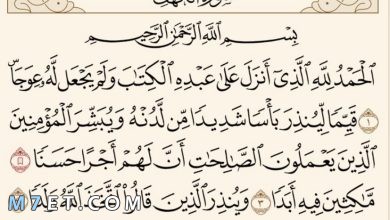 سورة الكهف
بِسْمِ اللَّهِ الرَّحْمَٰنِ الرَّحِيمِ
الْحَمْدُ لِلَّهِ الَّذِي أَنزَلَ عَلَىٰ عَبْدِهِ الْكِتَابَ وَلَمْ يَجْعَل لَّهُ عِوَجًا ۜ
١ قَيِّمًا لِّيُنذِرَ بَأْسًا شَدِيدًا مِّن لَّدُنْهُ وَيُبَشِّرَ الْمُؤْمِنِينَ
الَّذِينَ يَعْمَلُونَ الصَّالِحَاتِ أَنَّ لَهُمْ أَجْرًا حَسَنًا
مَّاكِثِينَ فِيهِ أَبَدًا ٣ وَيُنذِرَ الَّذِينَ قَالُوا اتَّخَذَ اللَّهُ وَلَدًا
M7ET.COM